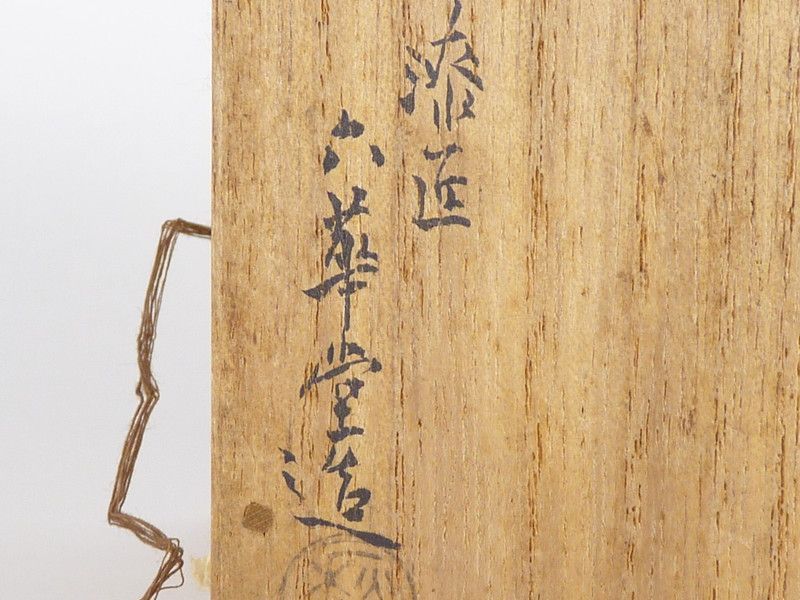 漆匠
六華堂造